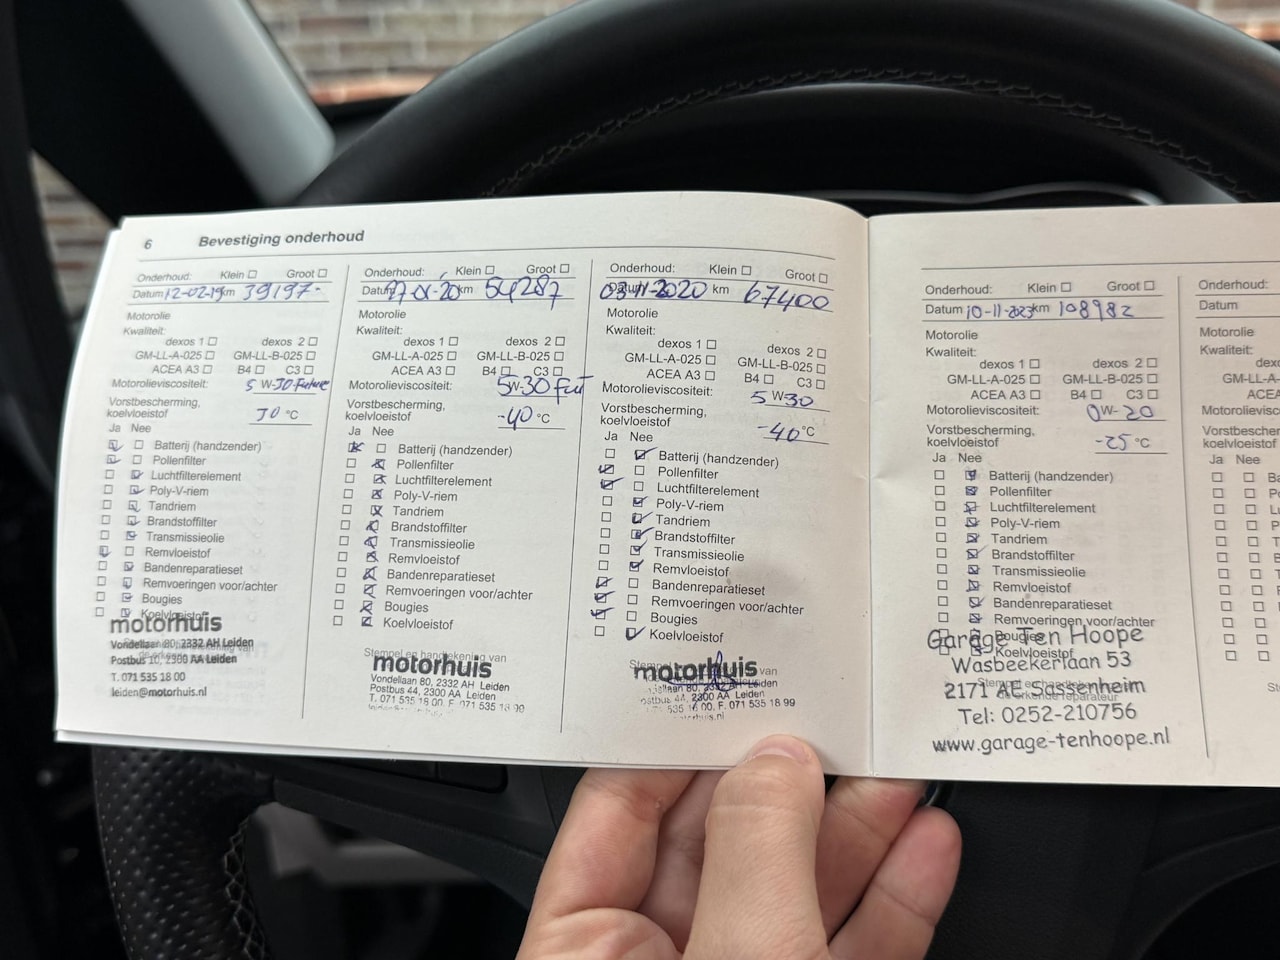 6 Bevestiging onderhoud
Onderhoud: Klein Groot
Datum 12-02-19 km 39197-
Motorolie
Kwaliteit:
dexos 1 dexos 2
GM-LL-A-025 GM-LL-B-025
ACEA A3 B4 C3
Motorolieviscositeit: 5 W-30 Future
Vorstbescherming,
koelvloeistof 30 °C
Ja Nee
Batterij (handzender)
Pollenfilter
Luchtfilterelement
Poly-V-riem
Tandriem
Brandstoffilter
Transmissieolie
Remvloeistof
Bandenreparatieset
Remvoeringen voor/achter
Bougies
Koelvloeistof
motorhuis
Vondellaan 80, 2332 AH Leiden
Postbus 10, 2300 AA Leiden
T. 071 535 18 00
leiden@motorhuis.nl
Onderhoud: Klein Groot
Datum -20 km 54287
Motorolie
Kwaliteit:
dexos 1 dexos 2
GM-LL-A-025 GM-LL-B-025
ACEA A3 B4 C3
Motorolieviscositeit: 5W-30 Fut
Vorstbescherming,
koelvloeistof -40 °C
Ja Nee
Batterij (handzender)
Pollenfilter
Luchtfilterelement
Poly-V-riem
Tandriem
Brandstoffilter
Transmissieolie
Remvloeistof
Bandenreparatieset
Remvoeringen voor/achter
Bougies
Koelvloeistof
Stempel en handtekening van
motorhuis
Vondellaan 80, 2332 AH Leiden
Postbus 44, 2300 AA Leiden
T. 071 535 18 00. F. 071 535 18 99
Onderhoud: Klein Groot
Datum 03-11-2020 km 67400
Motorolie
Kwaliteit:
dexos 1 dexos 2
GM-LL-A-025 GM-LL-B-025
ACEA A3 B4 C3
Motorolieviscositeit: 5 W-30
Vorstbescherming,
koelvloeistof -40 °C
Ja Nee
Batterij (handzender)
Pollenfilter
Luchtfilterelement
Poly-V-riem
Tandriem
Brandstoffilter
Transmissieolie
Remvloeistof
Bandenreparatieset
Remvoeringen voor/achter
Bougies
Koelvloeistof
Stempel van
motorhuis
80, 2332 AH Leiden
44, 2300 AA Leiden
535 18 00. F. 071 535 18 99
Onderhoud: Klein Groot
Datum 10-11-2023 km 108982
Motorolie
Kwaliteit:
dexos 1 dexos 2
GM-LL-A-025 GM-LL-B-025
ACEA A3 B4 C3
Motorolieviscositeit: 0W-20
Vorstbescherming,
koelvloeistof -25 °C
Ja Nee
Batterij (handzender)
Pollenfilter
Luchtfilterelement
Poly-V-riem
Tandriem
Brandstoffilter
Transmissieolie
Remvloeistof
Bandenreparatieset
Remvoeringen voor/achter
Bougies
Koelvloeistof
Garage Ten Hoope
Wasbeekerlaan 53
2171 AE Sassenheim
Tel: 0252-210756
www.garage-tenhoope.nl
Onderhoud:
Datum
Motorolie
Kwaliteit:
GM-LL-A
ACEA
Motorolieviscosit
Vorstbescherming
koelvloeistof
Ja Nee